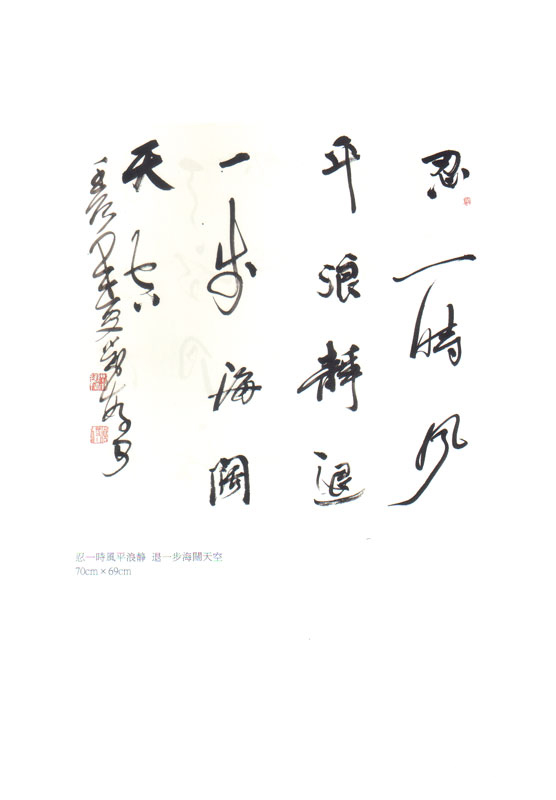 忍一時風
平浪靜退
一步海闊
天空
忍一時風平浪静 退一步海闊天空
70cm×69cm